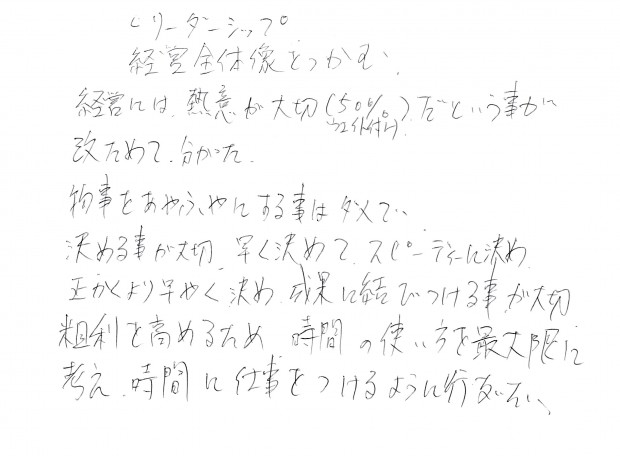 リーダーシップ
経営全体像をつかむ、
経営には、熱意が大切(50%)だという事が
ウエイト付け
改ためて、分かった。
物事をあやふやにする事はダメで、
決める事が大切、早く決めて、スピーディーに決め
正かくより早やく、決め、成果に結びつける事が大切
粗利を高めるため 時間の使い方を最大限に
考え、時間に仕事をつけるように行